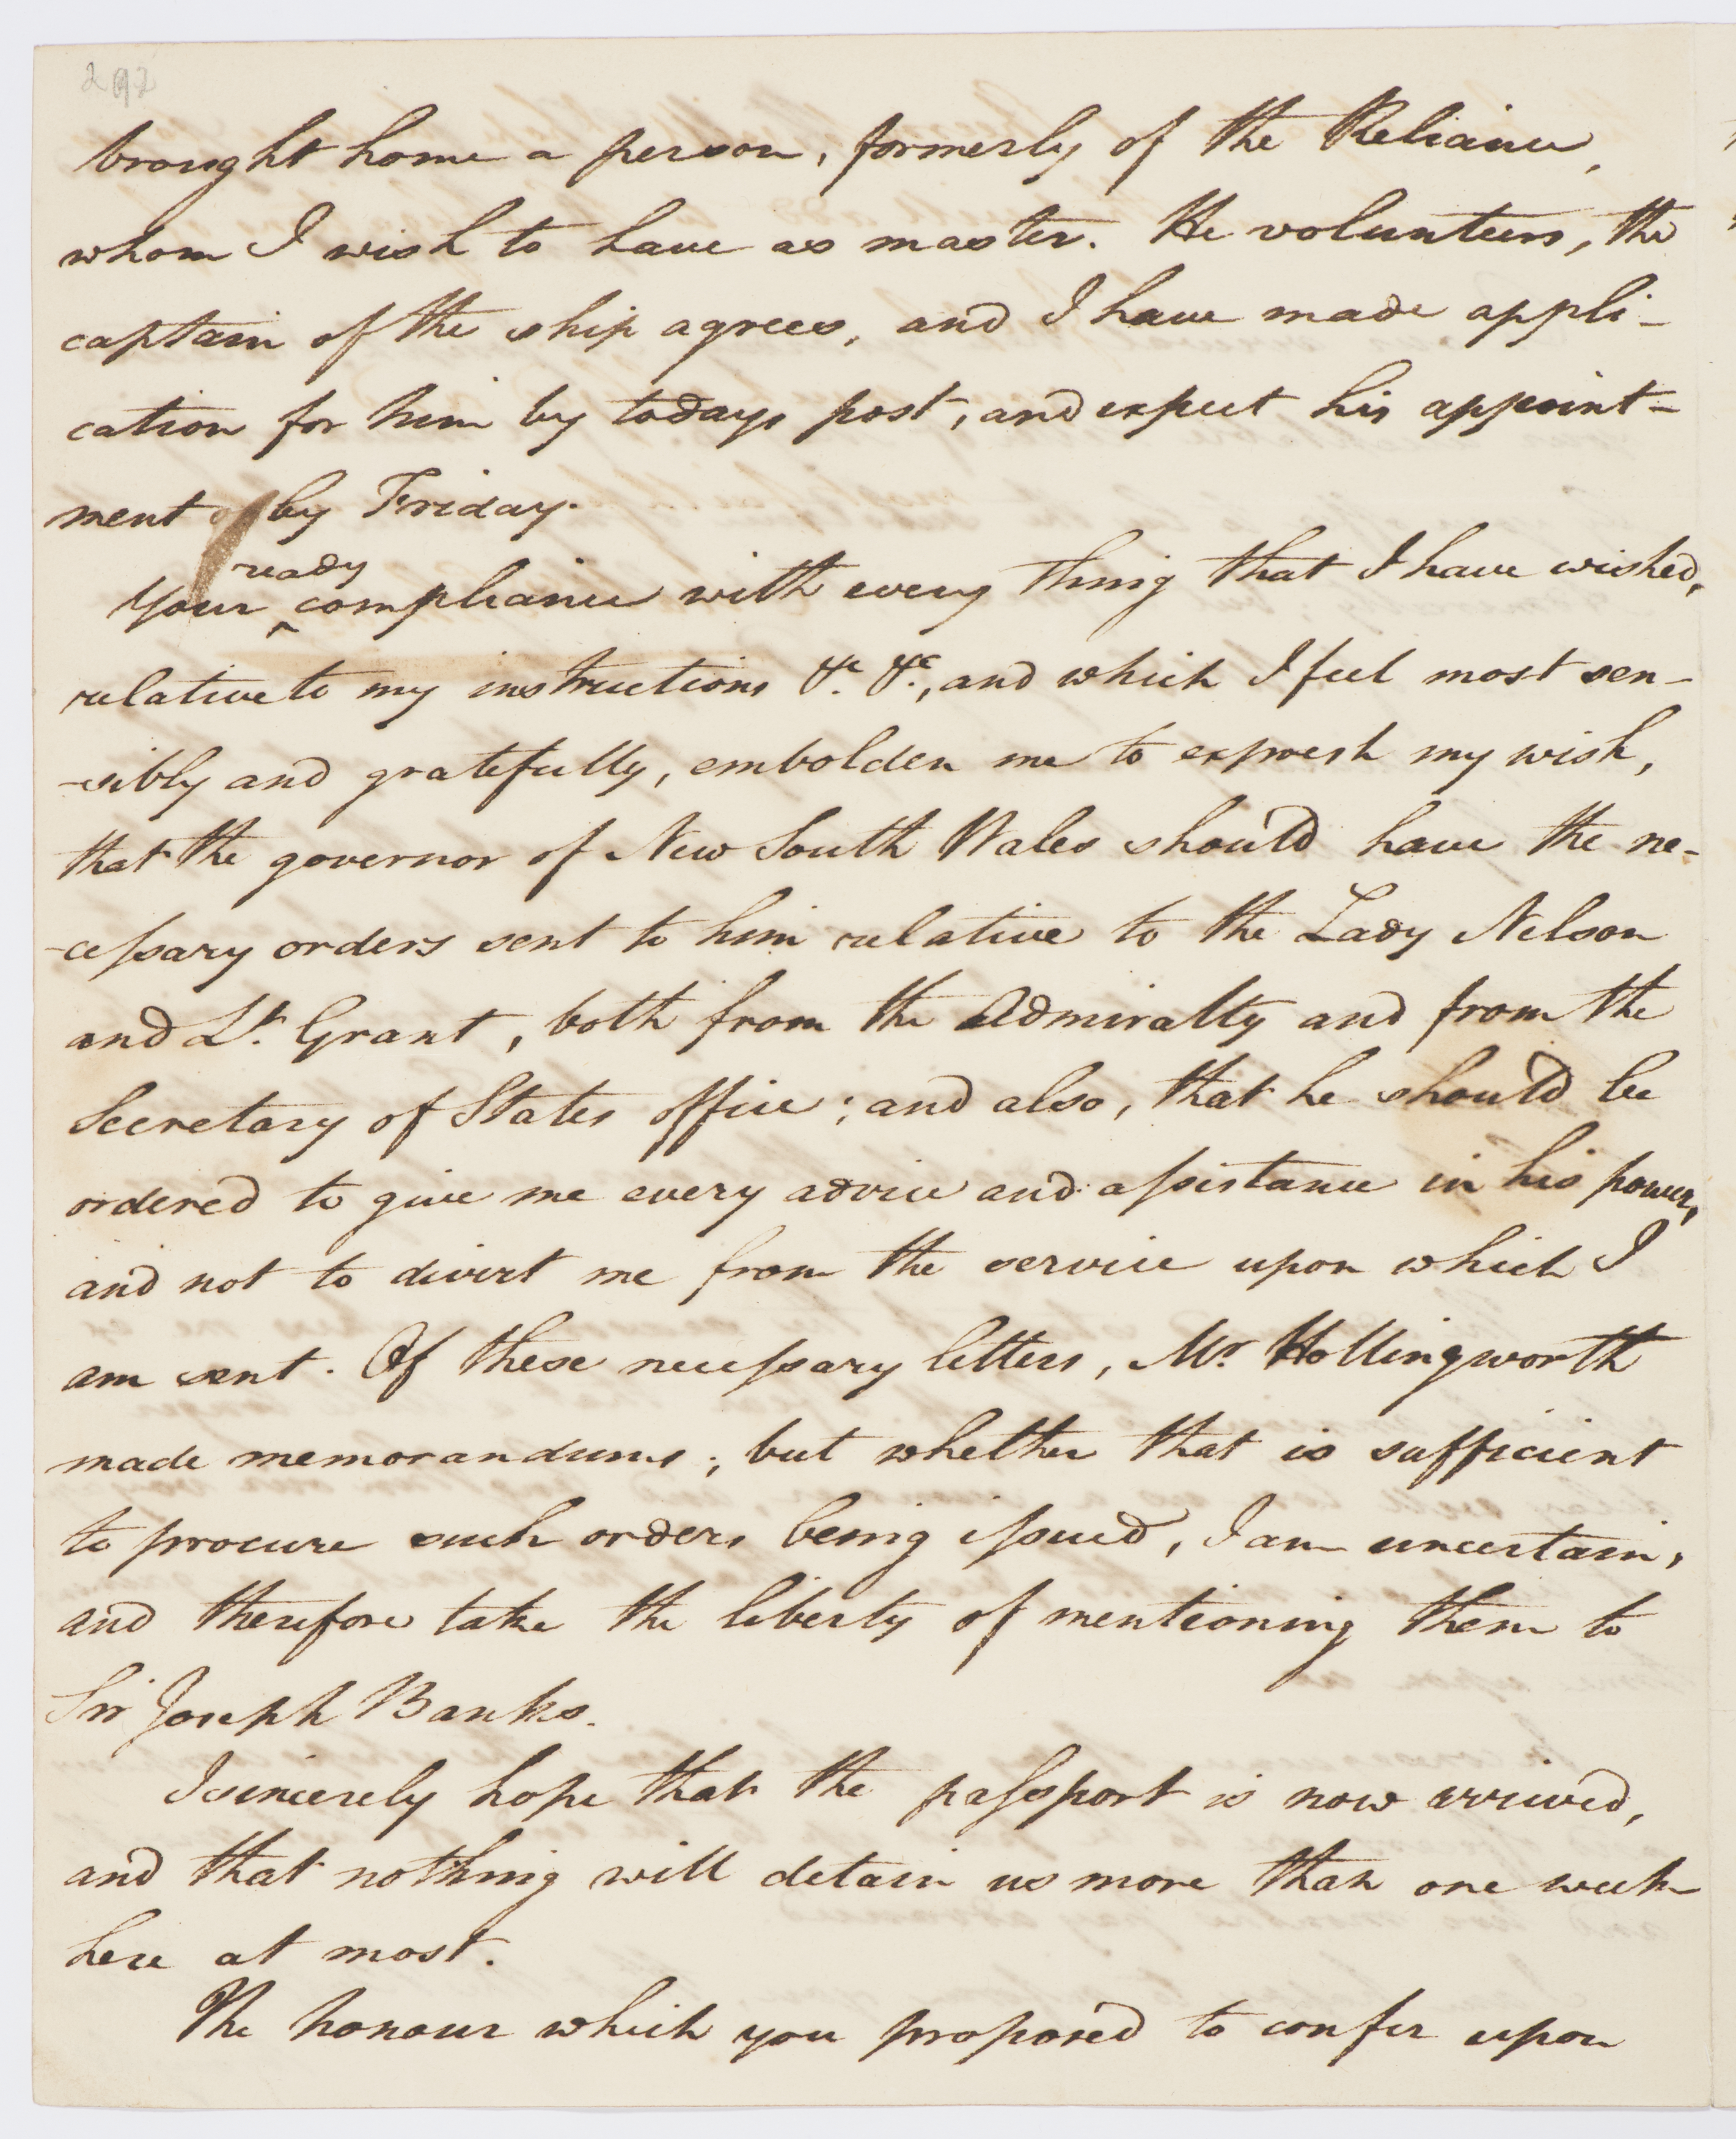 292
brought home a person, formerly of the Reliance,
whom I wish to have as master. He volunteers, the
captain of the ship agrees, and I have made appli-
cation for him by todays post, and expect his appoint-
ment by Friday.
ready
Your ^ compliance with every thing that I have wished,
relative to my instructions &c. &c., and which I feel most sen-
-sibly and gratefully, embolden me to express my wish,
that the governor of New South Wales should have the ne-
-cessary orders sent to him relative to the Lady Nelson
and Lt. Grant, both from the Admiralty and from the
Secretary of States office; and also, that he should be
ordered to give me every advice and assistance in his power,
and not to divert me from the service upon which I
am sent. Of these necessary letters, Mr. Hollingworth
made memorandums; but whether that is sufficient
to procure such orders being issued, I am uncertain,
and therefore take the liberty of mentioning them to
Sir Joseph Banks.
I sincerely hope that the passport is now arrived,
and that nothing will detain us more than one week
here at most.
The honour which you proposed to confer upon